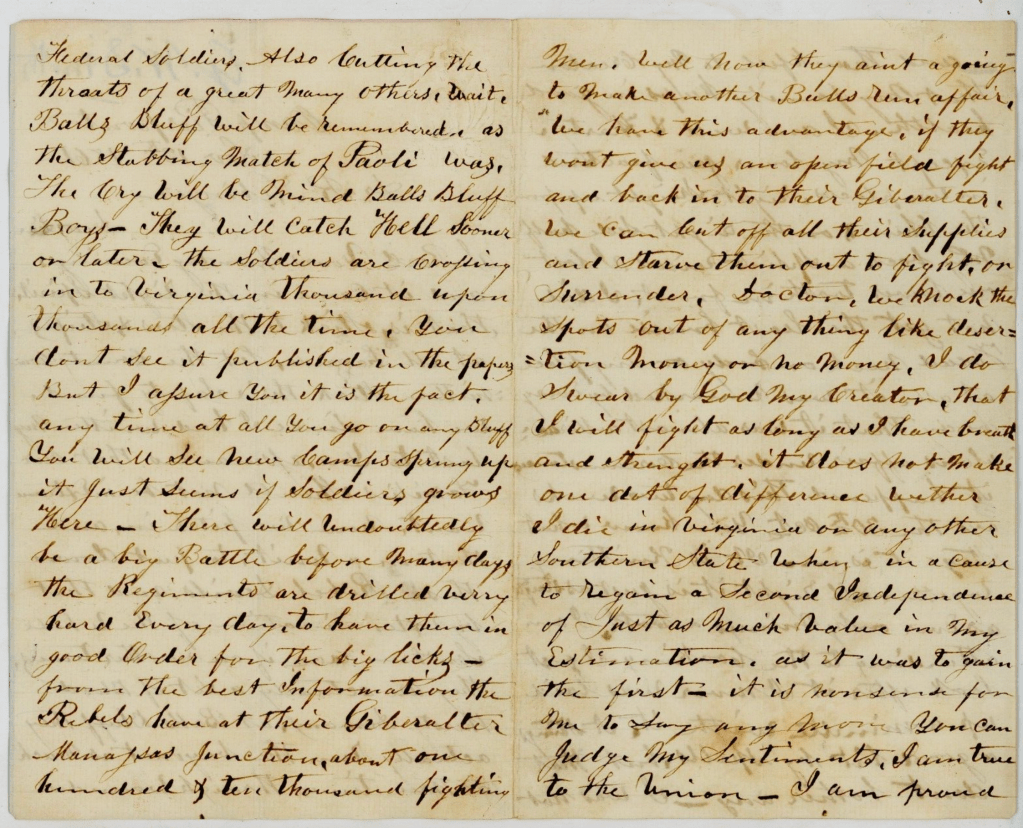 Federal Soldiers. Also Cutting the
throats of a great Many others. Wait.
Balls Bluff will be remembered. as
the Stabbing Match of Paoli was.
The Cry will be Mind Balls Bluff
Boys — They will Catch Hell Sooner
or later — the Soldiers are Crossing
in to Virginia thousand upon
thousands all the time. You
dont See it published in the papers
But I assure You it is the fact.
any time at all You go on any Bluff
You Will See New Camps Sprung up
it Just Seems if Soldiers grows
Here — There will Undoubtedly
be a big Battle before Many days
the Regiments are drilled verry
hard Every day, to have them in
good Order for the big licks —
from the best Information the
Rebels have at their Giberalter
Manassas Junction, about one
hundred & ten thousand fighting
Men. Well Now they aint a going
to Make another Bulls run affair.
We have this advantage, if they
wont give us an open field fight
and back in to their Giberalter.
We Can Cut off all their Supplies
and Starve them out to fight, or
Surrender. Doctor, We Knock the
Spots out of any thing like deser=
=tion Money or no Money. I do
Swear by God My Creator, that
I will fight as long as I have breath
and strenght. it does not Make
one dot of difference wether
I die in Virginia or any other
Southern State When in a cause
to regain a Second Independence
of Just as Much Value in My
Estimation. as it was to gain
the first — it is nonsense for
Me to Say any More You Can
Judge My Sentiments. I am true
to the Union — I am proud